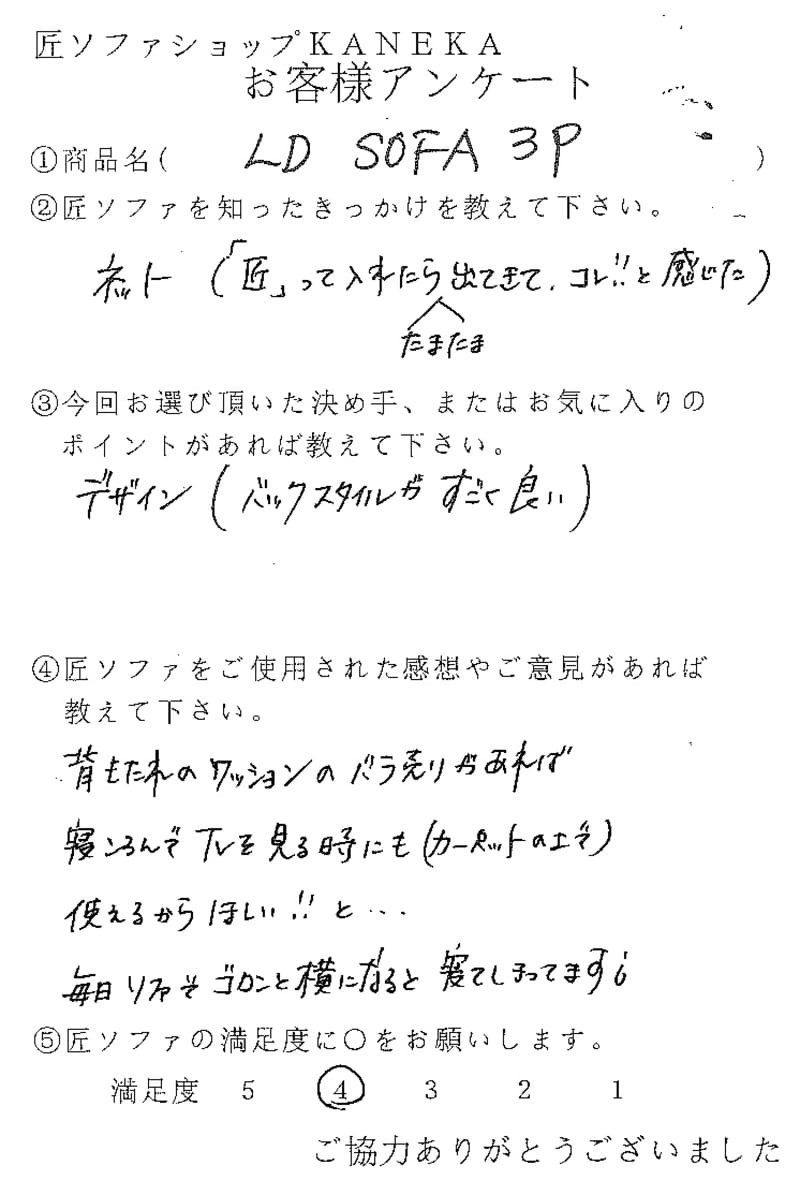 匠ソファショップKANEKA
お客様アンケート
①商品名( LD SOFA 3P )
②匠ソファを知ったきっかけを教えて下さい。
ネット (「匠」って入れたら出てきて、コレ!!と感じた)
たまたま
③今回お選び頂いた決め手、またはお気に入りの
ポイントがあれば教えて下さい。
デザイン (バックスタイルがすごく良い)
④匠ソファをご使用された感想やご意見があれば
教えて下さい。
背もたれのクッションのバラ売りがあれば
寝ころんでTVを見る時にも(カーペットの上で)
使えるからほしい!!と…
毎日ソファでゴロンと横になると寝てしまってます
⑤匠ソファの満足度に〇をお願いします。
満足度 5 4 3 2 1
ご協力ありがとうございました